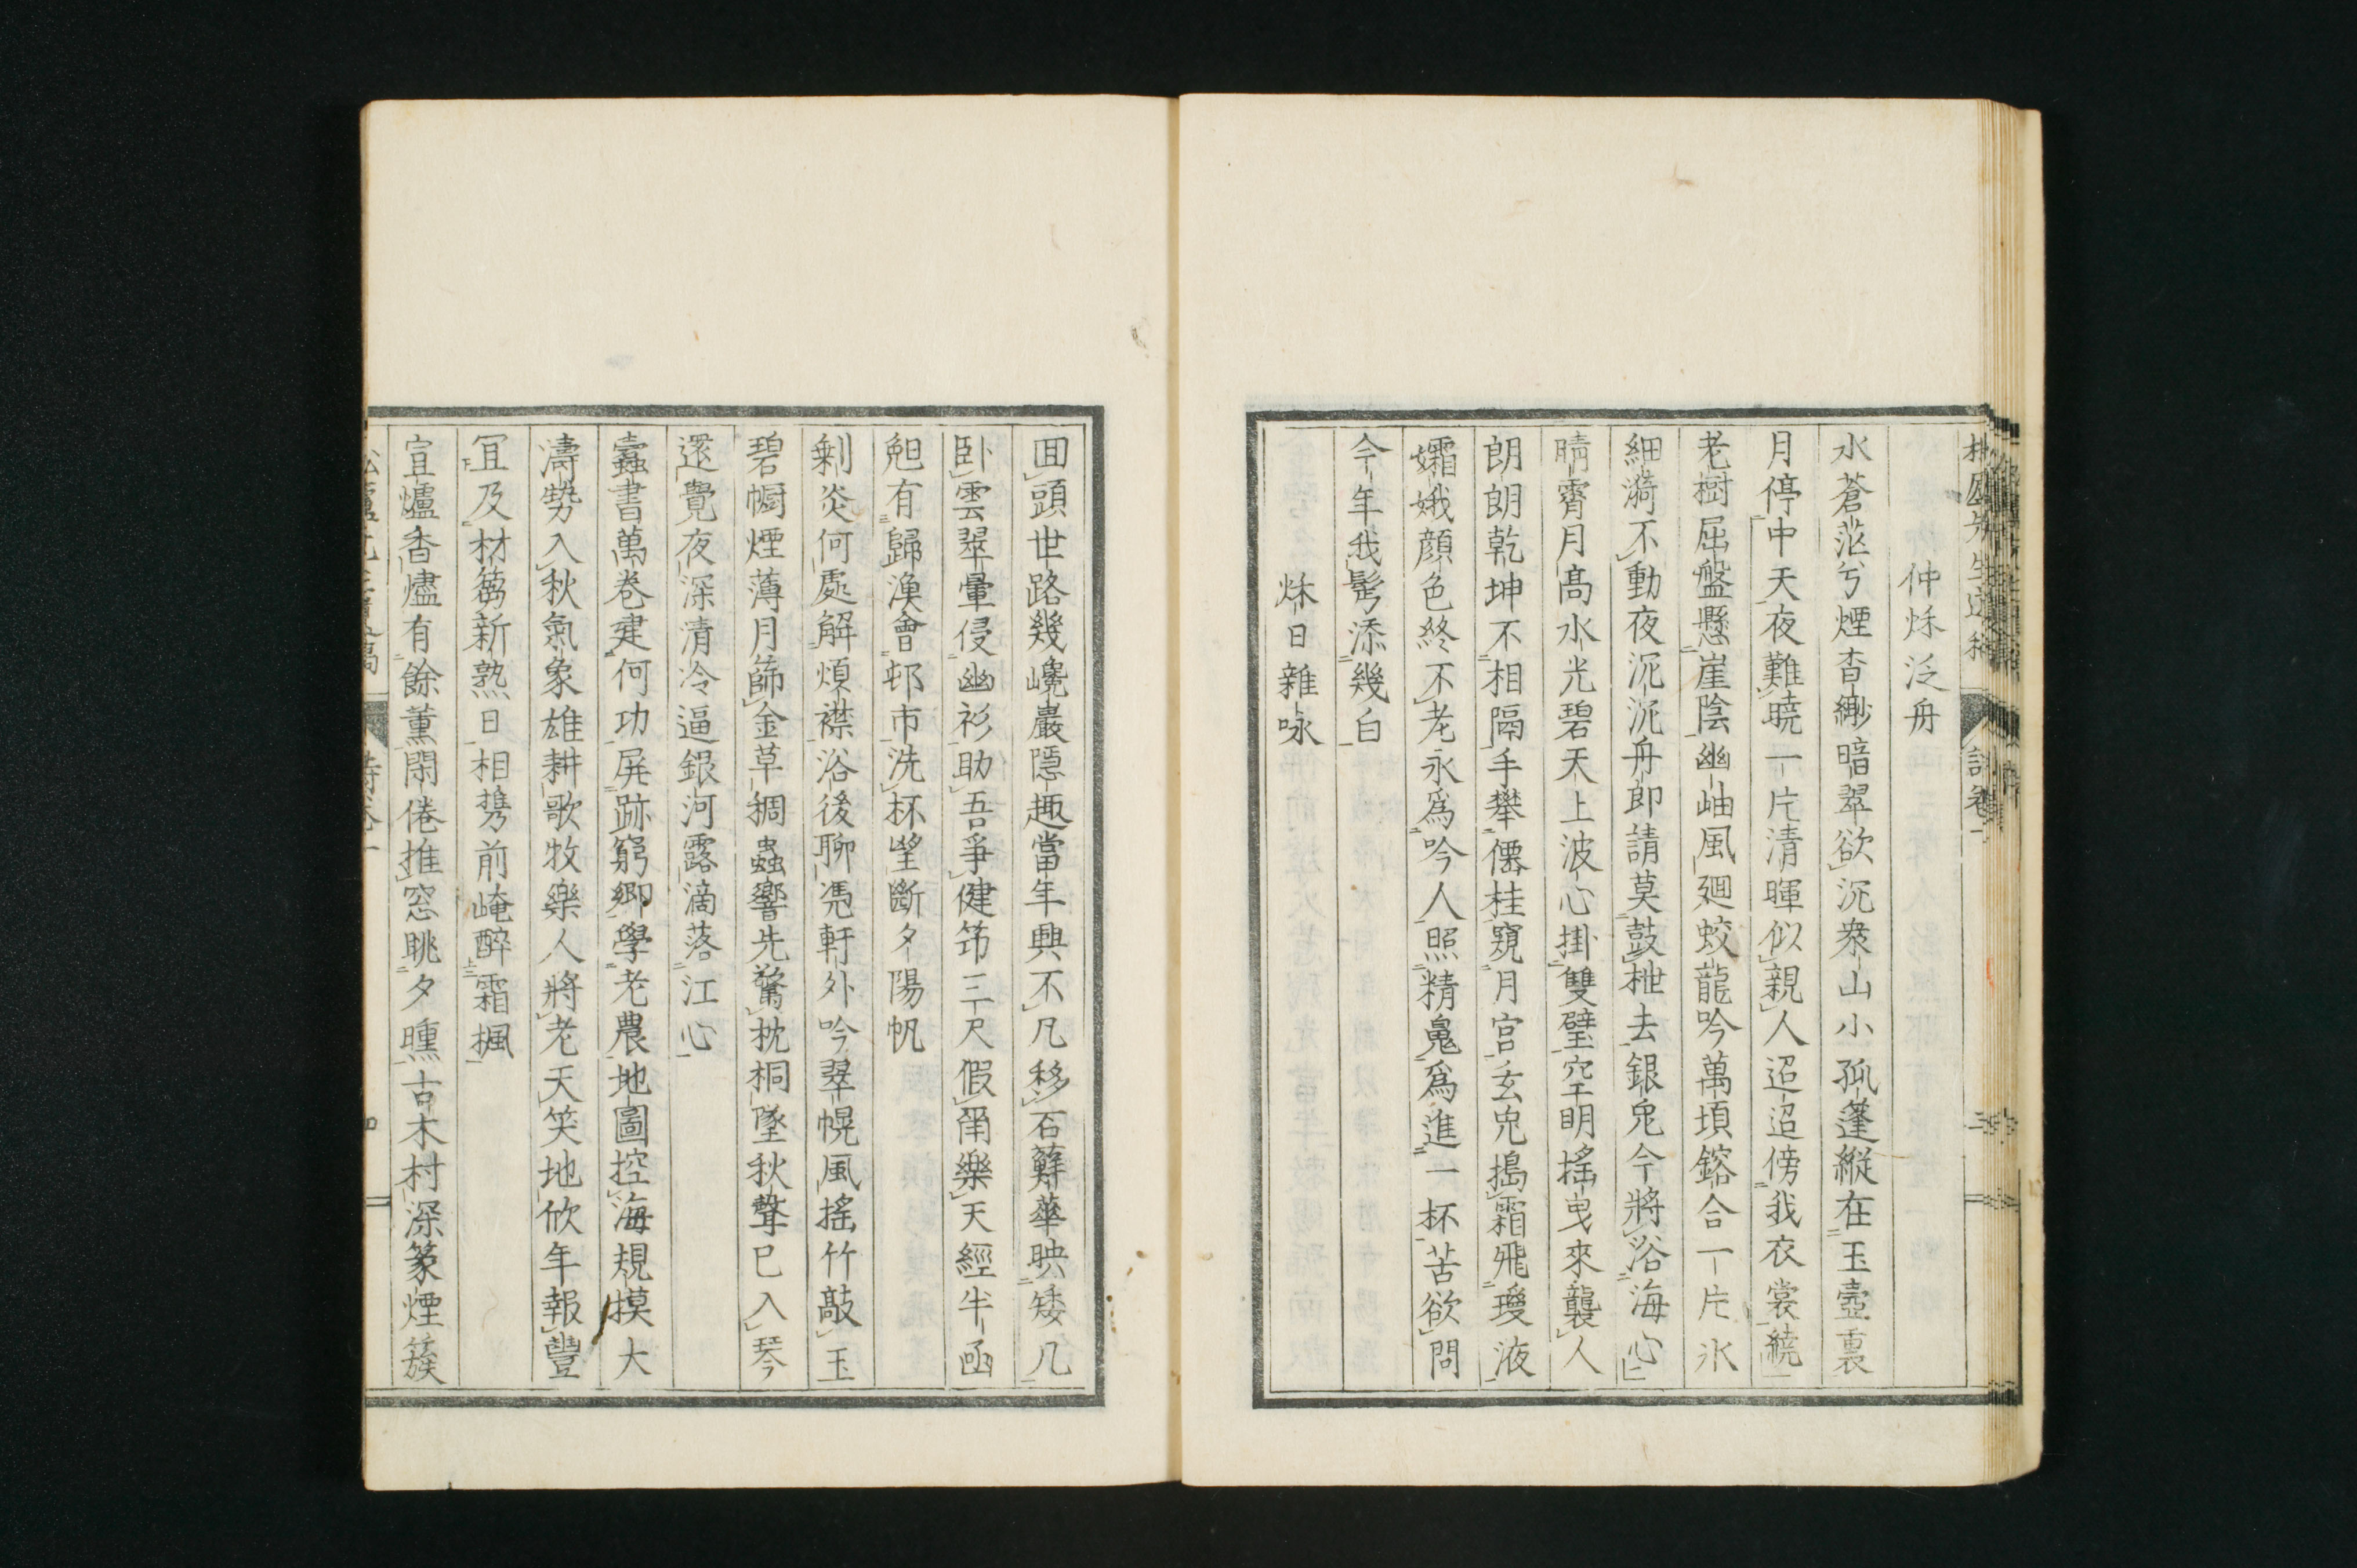 仲秌泛舟
水蒼茫兮煙杳緲暗翠欲沉衆山小孤蓬縦在玉壺裏
月停中天夜難曉一片清暉似親人迢迢傍我衣裳繞
老樹屈盤懸崖陰幽岫風廻蛟龍吟萬頃鎔合一片氷
細漪不動夜沉沉舟郎請莫鼓枻去銀兒今將浴海心
晴霄月高水光碧天上波心掛雙璧空明揺曳來襲人
朗朗乾坤不相隔手攀僊桂窺月宮玄兒搗霜飛瓊液
孀娥顔色終不老永爲吟人照精鬼爲進一杯苦欲問
今年我髩添幾白
秌日雜咏
回頭世路幾巉巖隠趣當年興不凡移石蘚華映矮几
卧雲翠暈侵幽衫助吾爭健笻三尺假甭樂天經半函
匏有歸漁會邨市洗杯望斷夕陽帆
剰炎何處解煩襟浴後聊凭軒外吟翠幌風搖竹敲玉
碧幮煙薄月篩金草稠蟲響先驚枕桐墜秋聲已入琴
還覺夜深清冷逼銀河露滴落江心
蠹書萬卷建何功屏跡窮郷學老農地圖控海規摸大
濤勢入秋氣象雄耕歌牧樂人將老天笑地欣年報豐
冝及材蒭新熟日相携前崦醉霜楓
宣爐香燼有餘薫閑倦推窓眺夕曛古木村深篆煙簇